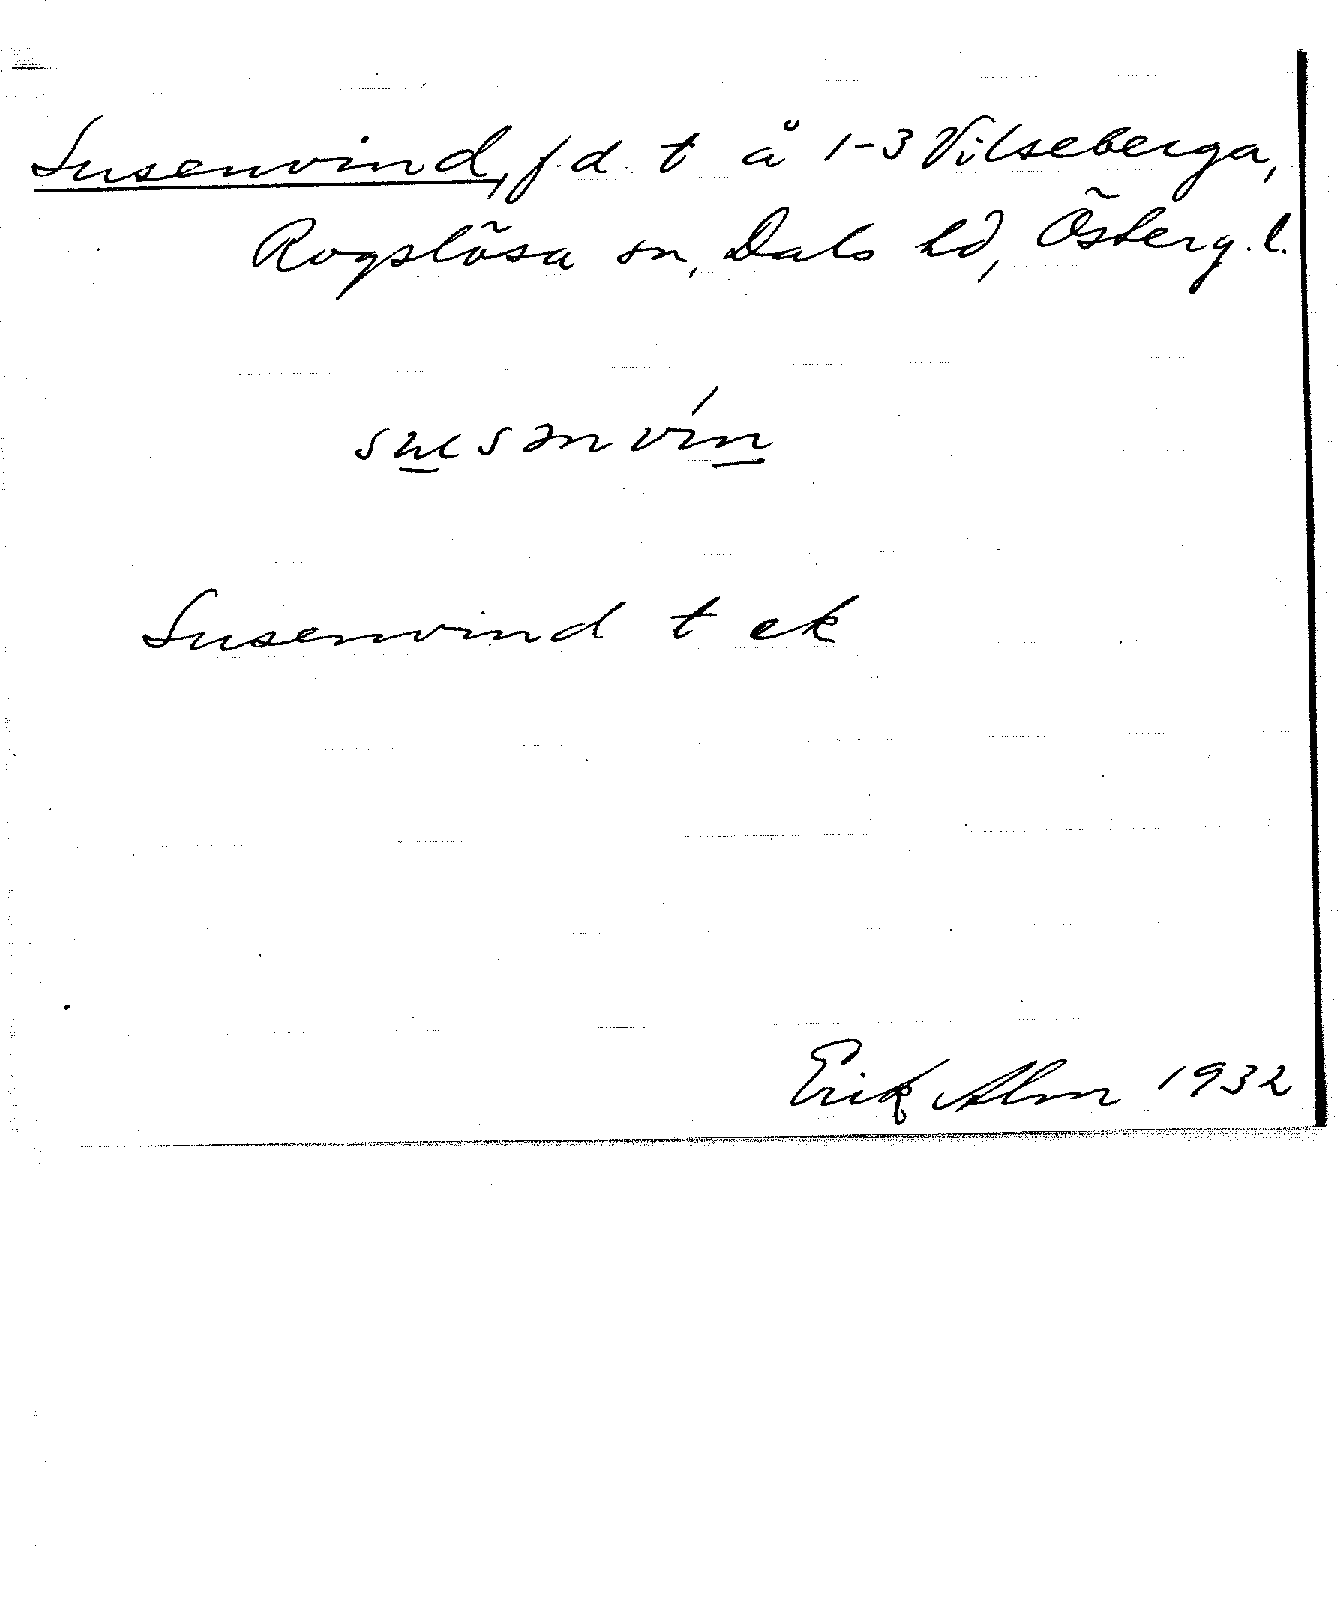 Susenvind, f.d. t å 1-3 Vilseberga,
Rogslösa sn, Dals hd, Österg. l.
susənvín
Susenvind t ek
Erik Alm 1932